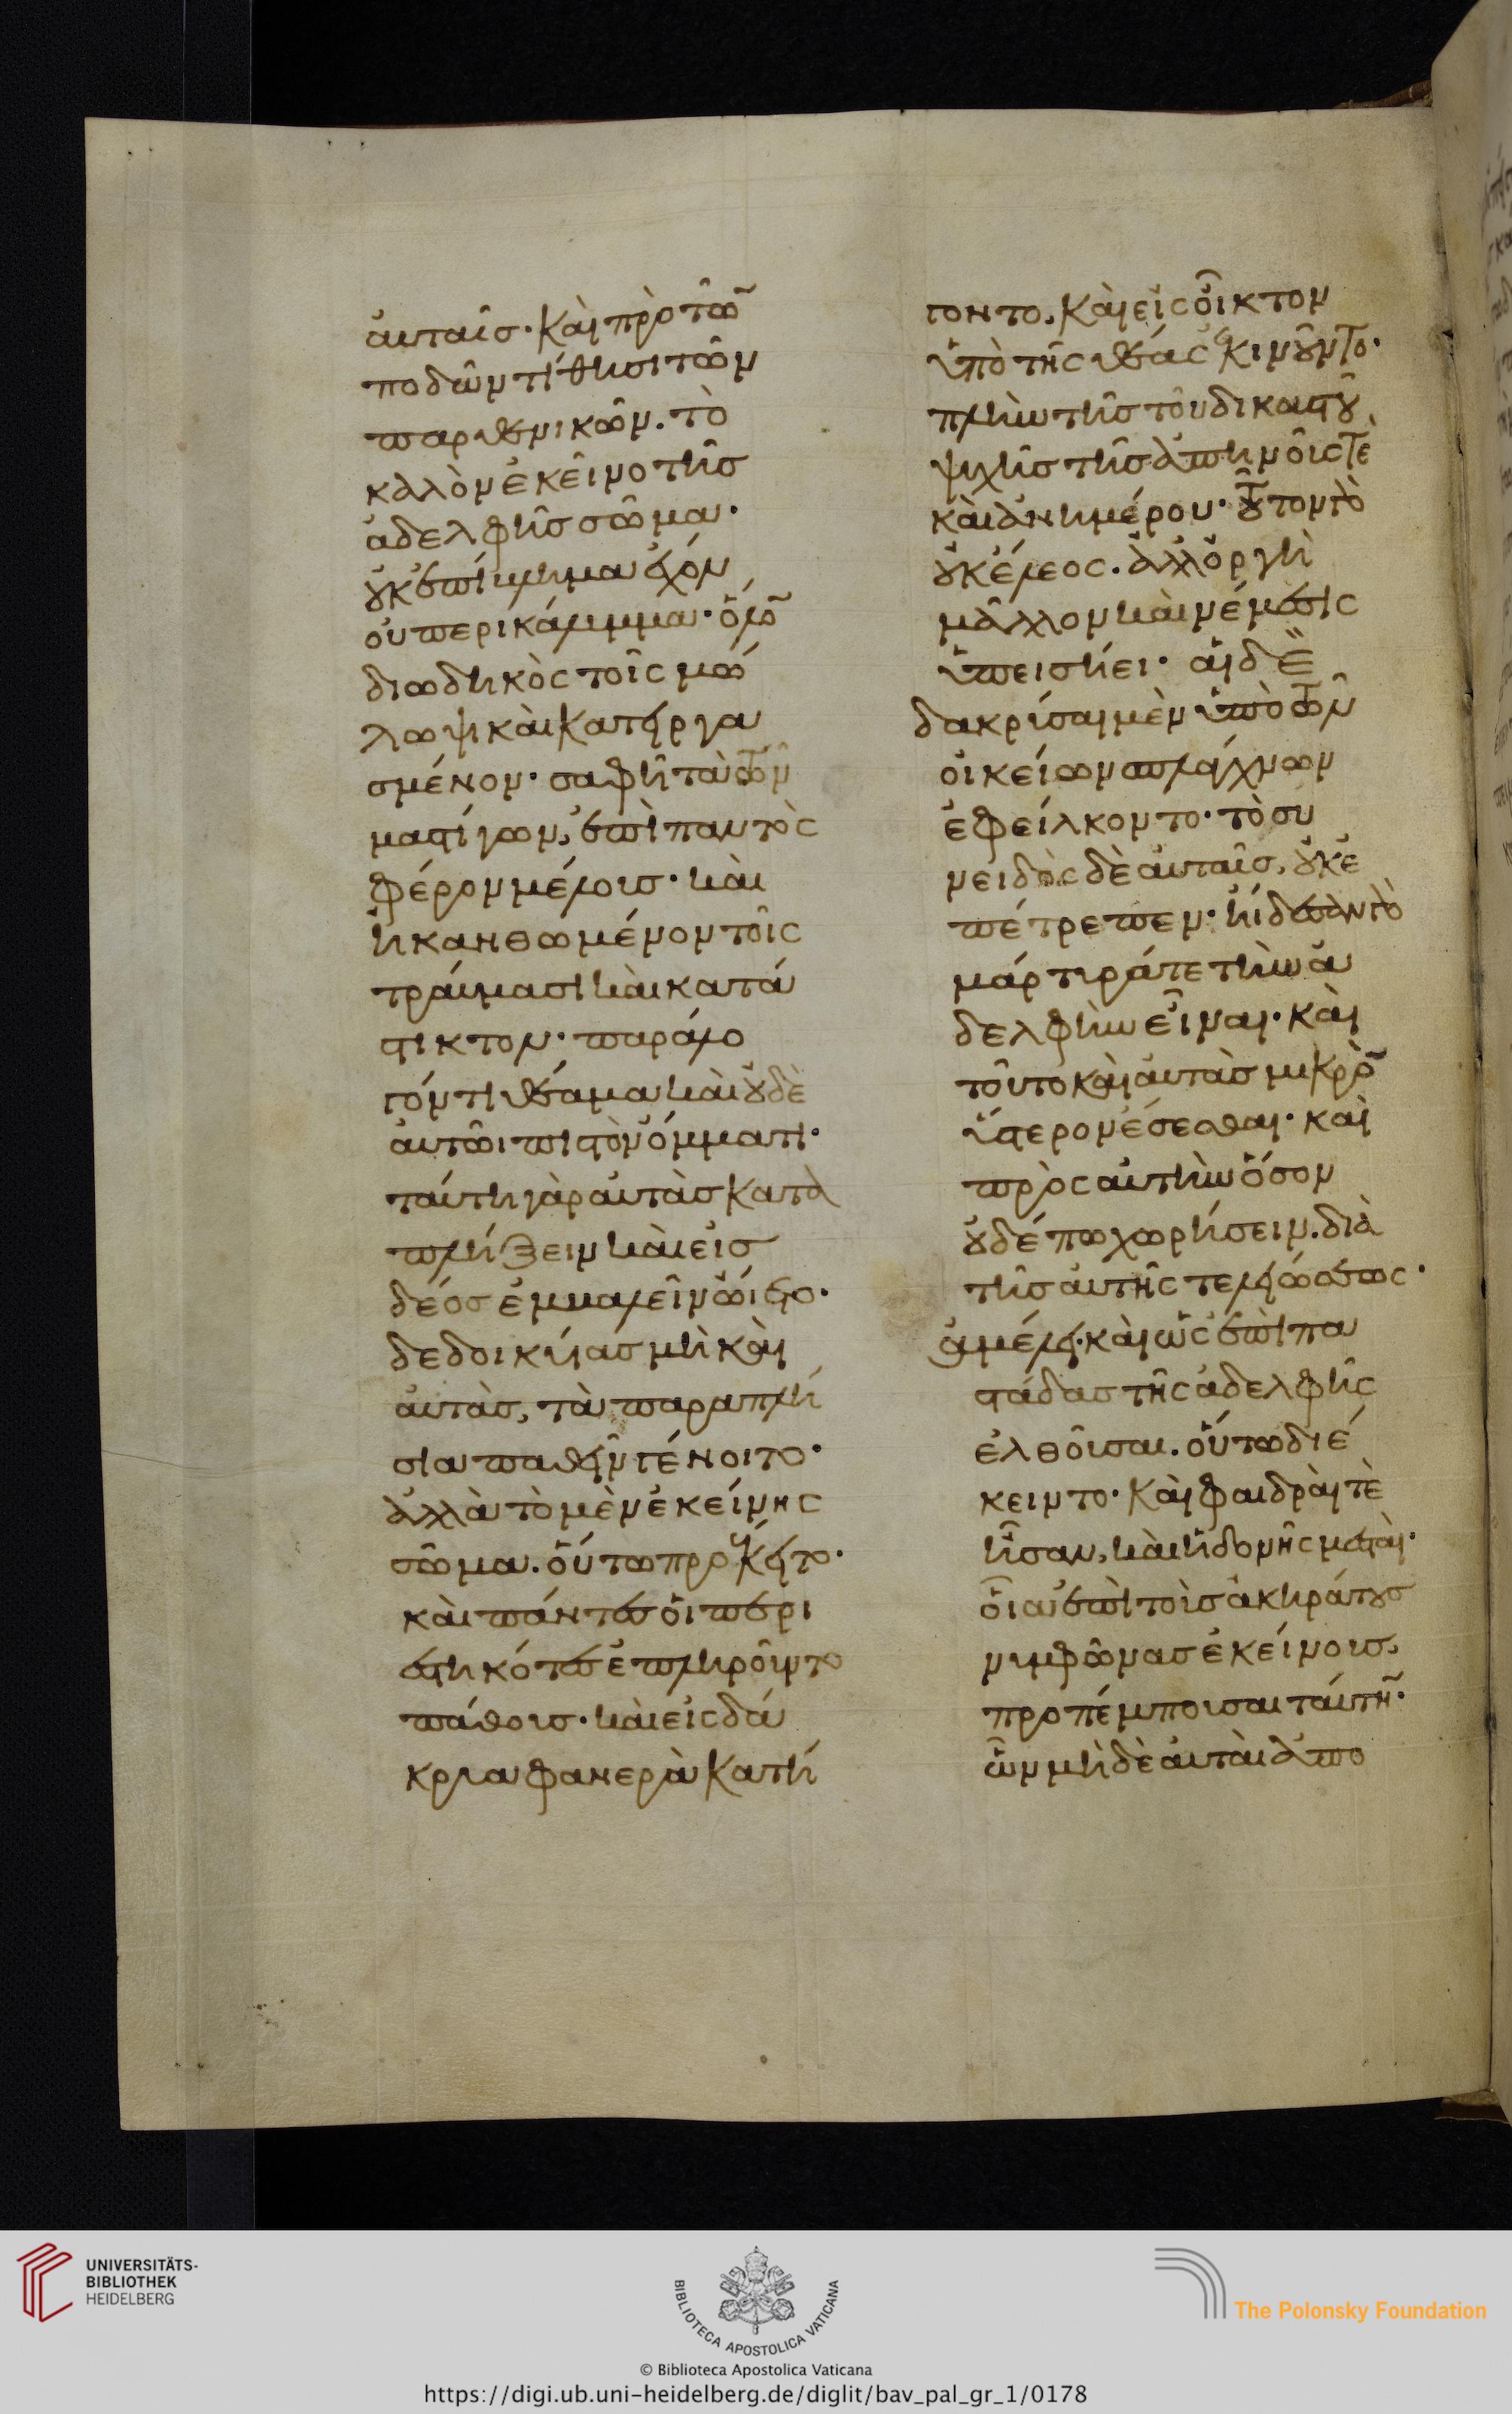 ἀυταῖσ· καὶ πρὸ τῶ̃
ποδῶν τίθησι τῶν
παρθενικῶν. τὸ
καλὸν ἐκεῖνο τῆσ
ἀδελφῆσ σῶμα·
οὐκ ἐπίβλημα ἔχον,
οὐ περικάλυμμα· ὅλο̃
διωδηκὸς τοῖς μώ
λωψι καὶ κατειργα
σμένον· σαφῆ τὰ τῶν
μαστίγων, ἐπὶ παντὸς
φέρον μέλουσ· καὶ
ἠκανθωμένον τοῖς
τράυμασι καὶ κατά
στικτον· παράλο
γόν τι θέαμα καὶ οὐδὲ
ἀυτῶι πιστὸν ὄμματι·
ταύτη γὰρ ἀυτὰσ κατα
πλήξειν καὶ εἰσ
δέοσ ἐμβαλεῖν ὤιετο·
δεδοικυίασ μὴ καὶ
ἀυτὰσ, τὰ παραπλή
σια παθεῖν γένοιτο·
ἀλλὰ τὸ μὲν ἐκείνης
σῶμα. οὕτω προὔκειτο·
καὶ πάντεσ οἱ περι
εστηκότεσ ἐπληροῦντο
πάθουσ· καὶ εἰς δά
κρυα φανερὰ κατή
γοντο. καὶ εἰς οἶκτον
ὑπὸ τῆς θέας ἐκινοῦντο·
πλὴν τῆσ τοῦ δικαστοῦ,
ψυχῆσ τῆσ ἀπηνοῦς τὲ
καὶ ἀνημέρου· τοῦτον γὸ
οὐκ ἔλεος. ἀλλ' ὀργὴ
μᾶλλον καὶ νέμεσις
ὑπεισήει· αἱ δὲ
δακρύσαι μὲν ὑπὸ τῶν
οἰκείων σπλάγχνων
ἐφείλκοντο· τὸ συ
νειδὸς δὲ ἀυταῖσ, οὐκ ἐ
πέτρεπεν· ἤιδεσαν γὸ
μάρτυρά τε τὴν ἀ
δελφὴν εἶναι· καὶ
τοῦτο καὶ ἀυτὰσ μικρὸ̃
ὕστερον ἔσεσθαι· καὶ
πρὸς ἀυτὴν ὅσον
οὐδέπω χωρήσειν. διὰ
τῆσ ἀυτῆς τελειώσεως·
ἀμέλει· καὶ ὡς ἐπὶ πα
στάδασ τῆς ἀδελφῆς
ἐλθοῦσαι. οὕτω διέ
κειντο· καὶ φαιδραὶ τὲ
ἦσαν, καὶ ἡδονῆς μεσταί·
οἷα ἐπὶ τοὺσ ἀκηράτουσ
νυμφῶνασ ἐκείνουσ,
προπέμπουσαι ταύτη̃·
ὧν μὴ δὲ ἀυταὶ ἀπο
UNIVERSITÄTS-
BIBLIOTHEK
HEIDELBERG
BIBLIOTECA APOSTOLICA VATICANA
The Polonsky Foundation
© Biblioteca Apostolica Vaticana
https://digi.ub.uni-heidelberg.de/diglit/bav_pal_gr_1/0178